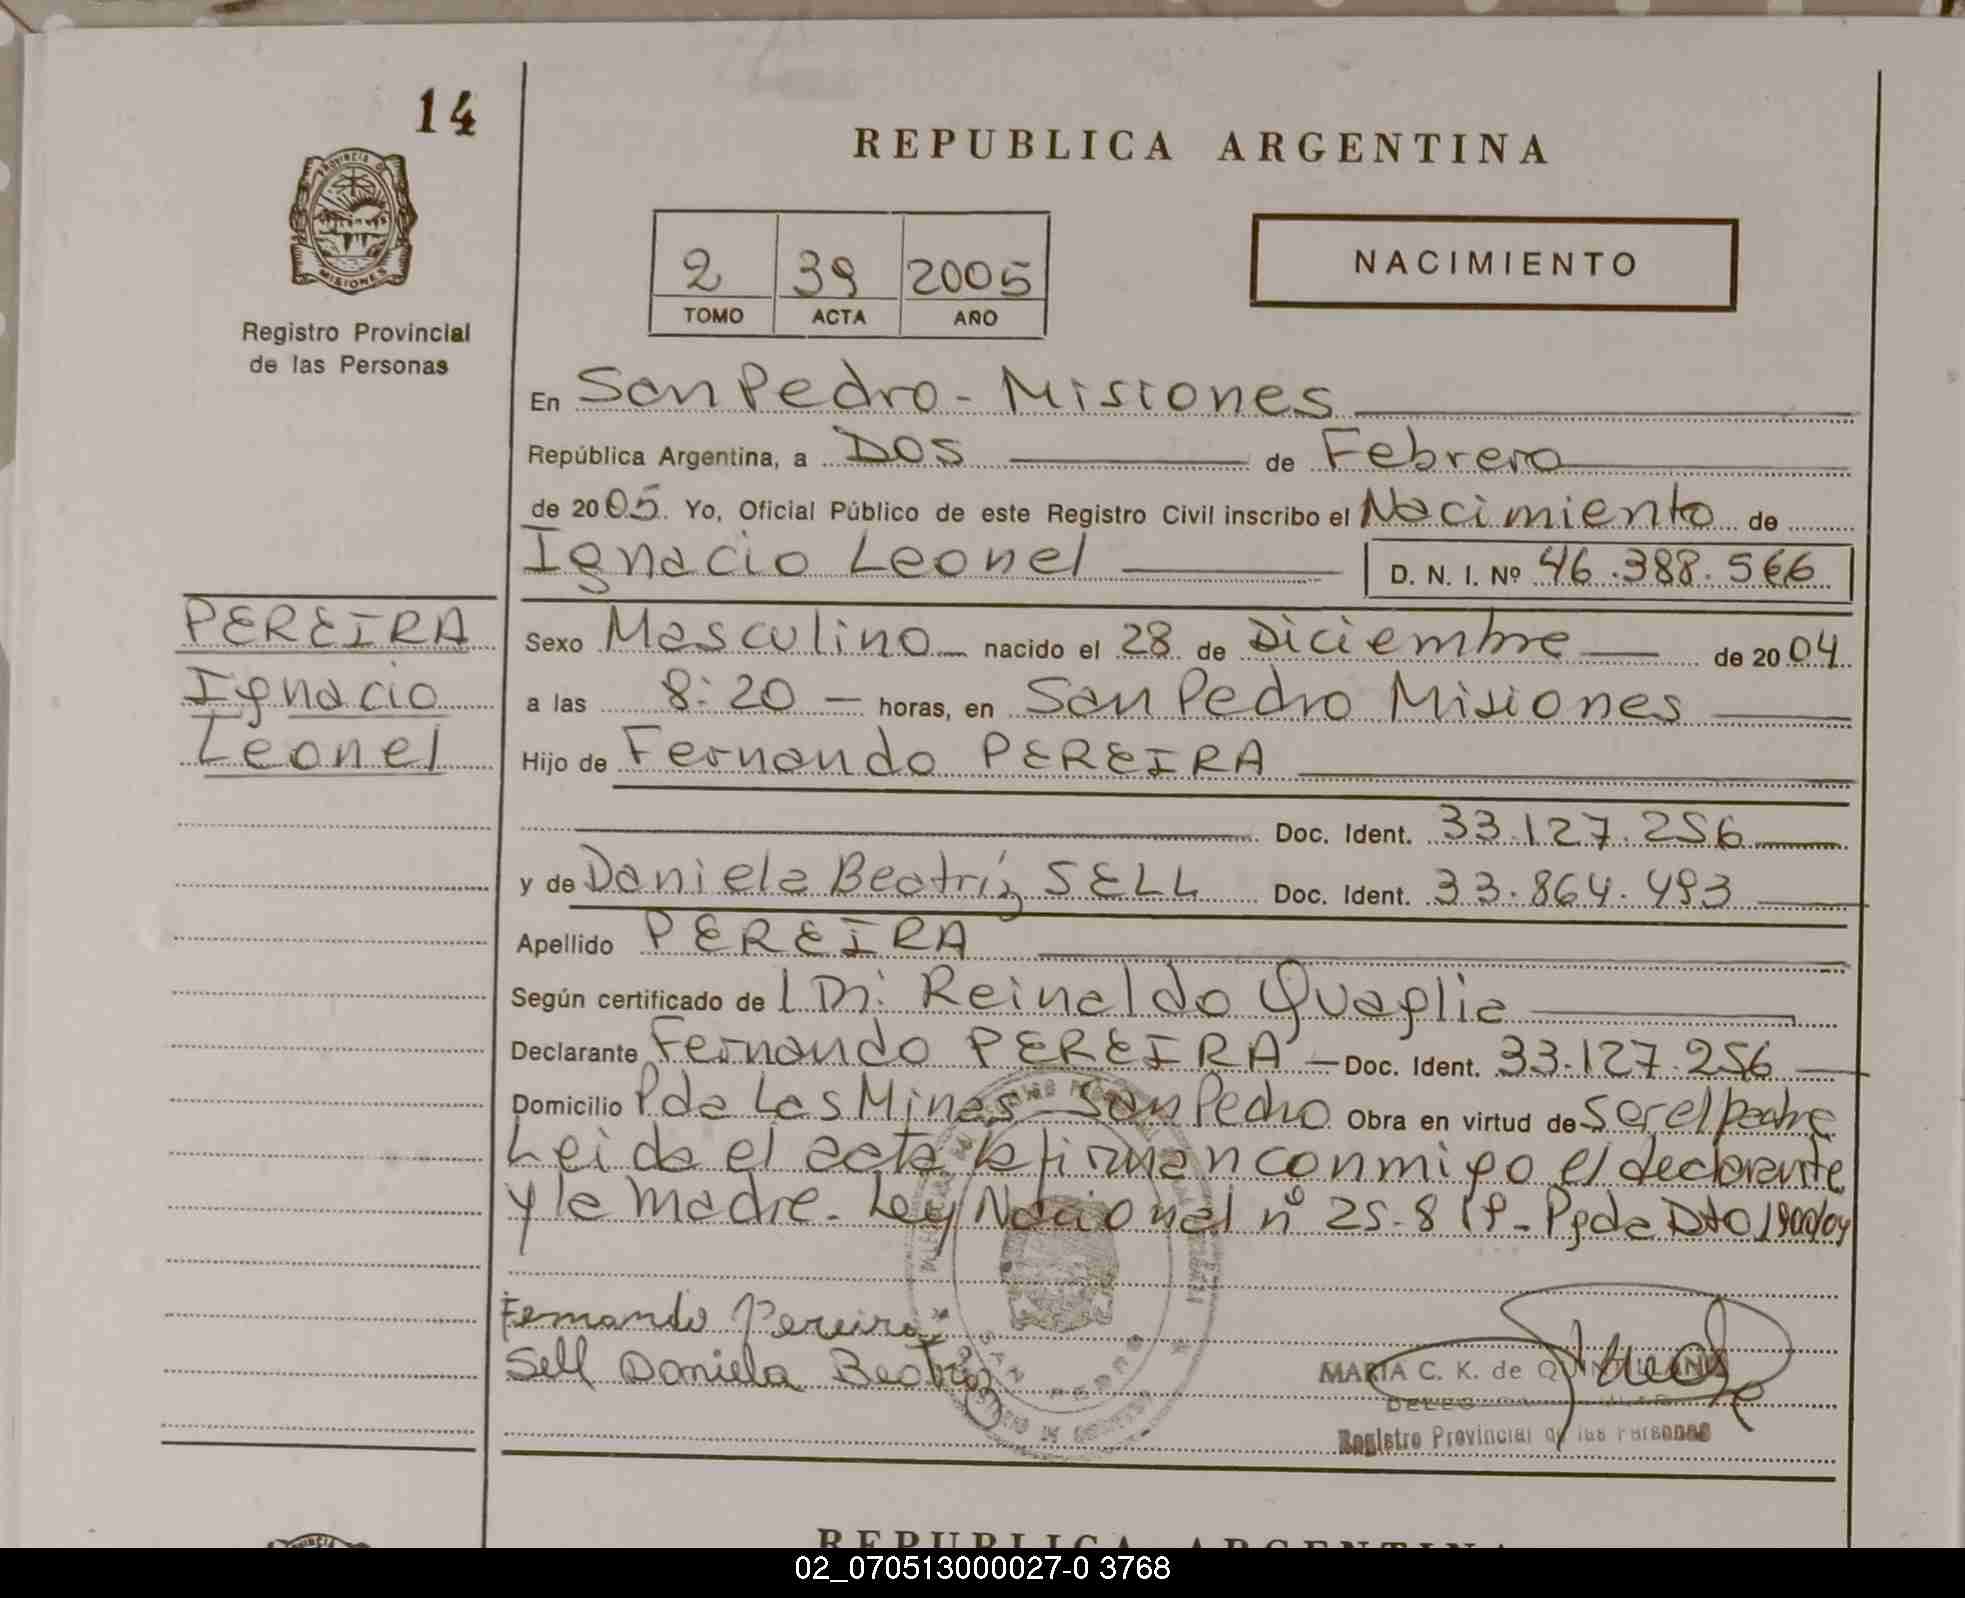 14
REPUBLICA ARGENTINA
PROVINCIA DE
MISIONES
Registro Provincial
de las Personas
2 39 2005
TOMO ACTA AÑO
NACIMIENTO
En San Pedro - Misiones
República Argentina, a Dos de Febrero
de 2005. Yo, Oficial Público de este Registro Civil inscribo el Nacimiento de
Ignacio Leonel D. N. I. Nº 46.388.566
PEREIRA
Ignacio
Leonel
Sexo Masculino nacido el 28 de Diciembre de 2004
a las 8:20 horas, en San Pedro Misiones
Hijo de Fernando PEREIRA
Doc. Ident. 33.127.256
y de Daniela Beatríz SELL Doc. Ident. 33.864.493
Apellido PEREIRA
Según certificado de Reinaldo Quaglia
Declarante Fernando PEREIRA - Doc. Ident. 33.127.256
Domicilio Pda Las Minas San Pedro Obra en virtud de Ser el padre
Leida el acta la firman conmigo el declarante
y la madre. Ley Nacional nº 25.819 - Dto 1900/04
Fernando Pereira
Sell Daniela Beatriz
MARIA C. K. de
Registro Provincial de las Personas
REPUBLICA ARGENTINA
02_070513000027-0 3768